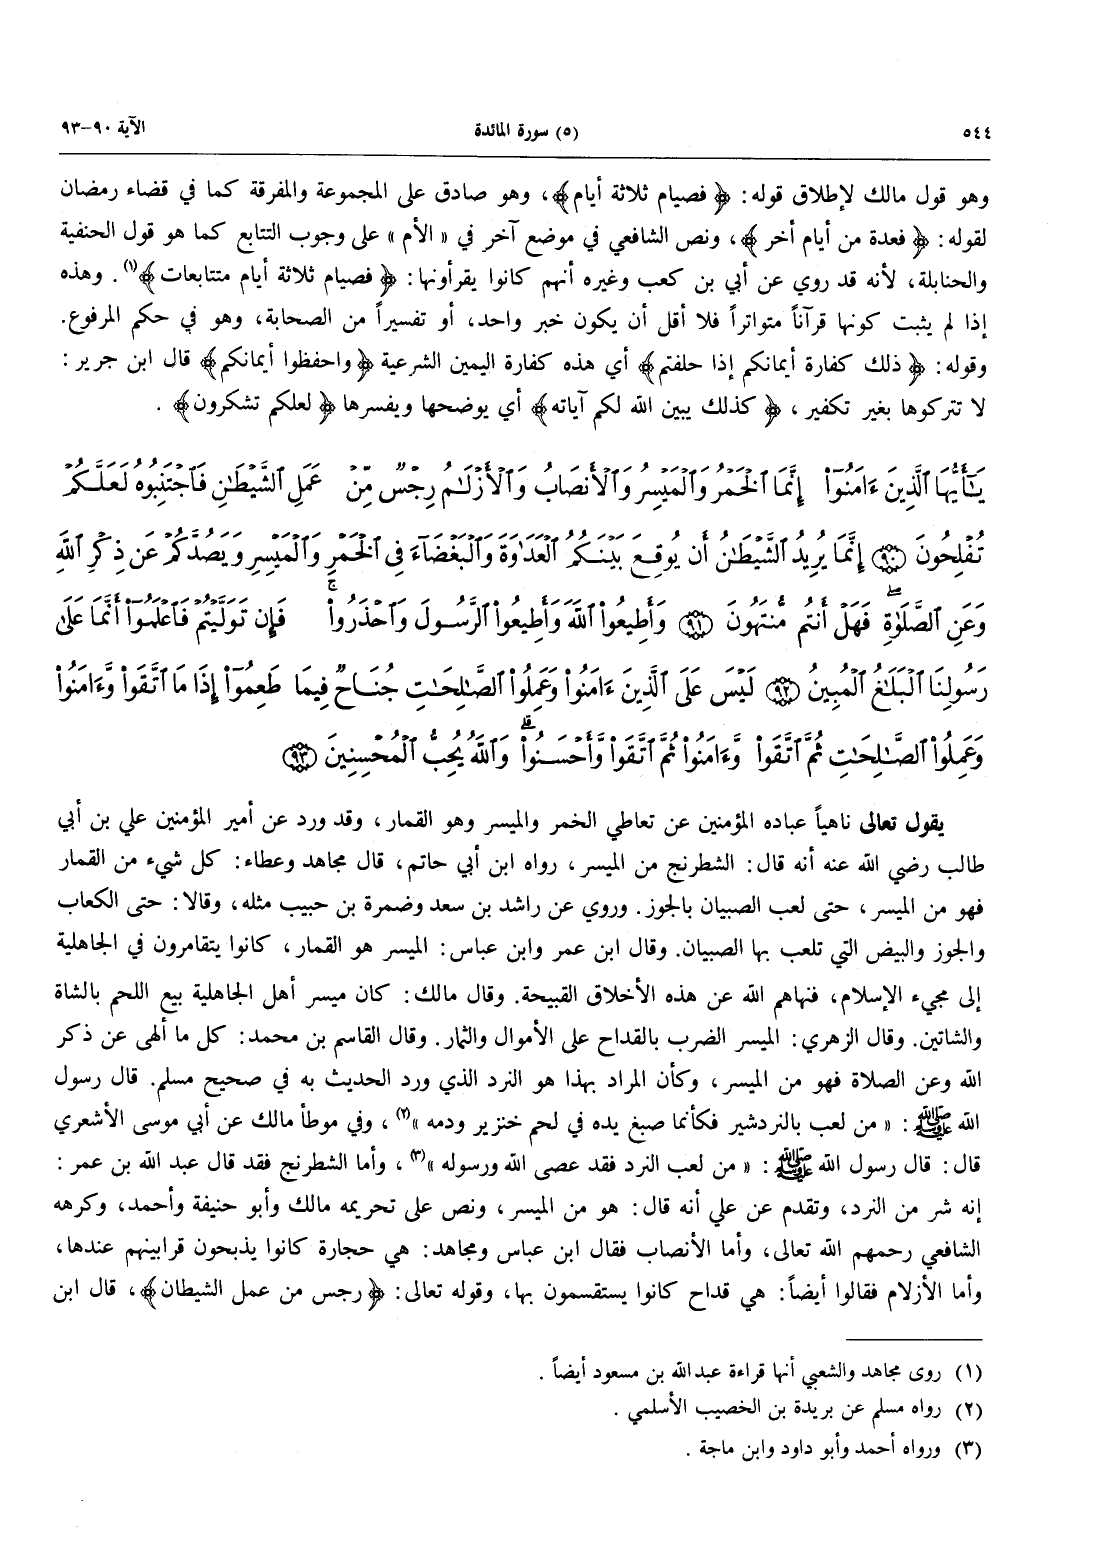 ٥٤٤ (٥) سورة المائدة الآية ٩٠-٩٣
وهو قول مالك لإطلاق قوله: ﴿ فصيام ثلاثة أيام﴾، وهو صادق على المجموعة والمفرقة كما في قضاء رمضان
لقوله: ﴿ فعدة من أيام أخر ﴾، ونص الشافعي في موضع آخر في « الأم » على وجوب التتابع كما هو قول الحنفية
والحنابلة، لأنه قد روي عن أبي بن كعب وغيره أنهم كانوا يقرأونها: ﴿ فصيام ثلاثة أيام متتابعات﴾(١). وهذه
إذا لم يثبت كونها قرآناً متواتراً فلا أقل أن يكون خبر واحد، أو تفسيراً من الصحابة، وهو في حكم المرفوع.
وقوله: ﴿ ذلك كفارة أيمانكم إذا حلفتم﴾ أي هذه كفارة اليمين الشرعية ﴿واحفظوا أيمانكم﴾ قال ابن جرير :
لا تتركوها بغير تكفير ، ﴿ كذلك يبين الله لكم آياته﴾ أي يوضحها ويفسرها ﴿ لعلكم تشكرون﴾ .
يَـٰٓأَيُّهَا ٱلَّذِينَ ءَامَنُوٓا۟ إِنَّمَا ٱلْخَمْرُ وَٱلْمَيْسِرُ وَٱلْأَنصَابُ وَٱلْأَزْلَـٰمُ رِجْسٌ مِّنْ عَمَلِ ٱلشَّيْطَـٰنِ فَٱجْتَنِبُوهُ لَعَلَّكُمْ
تُفْلِحُونَ ۝٩٠ إِنَّمَا يُرِيدُ ٱلشَّيْطَـٰنُ أَن يُوقِعَ بَيْنَكُمُ ٱلْعَدَٰوَةَ وَٱلْبَغْضَآءَ فِى ٱلْخَمْرِ وَٱلْمَيْسِرِ وَيَصُدَّكُمْ عَن ذِكْرِ ٱللَّهِ
وَعَنِ ٱلصَّلَوٰةِ ۖ فَهَلْ أَنتُم مُّنتَهُونَ ۝٩١ وَأَطِيعُوا۟ ٱللَّهَ وَأَطِيعُوا۟ ٱلرَّسُولَ وَٱحْذَرُوا۟ ۚ فَإِن تَوَلَّيْتُمْ فَٱعْلَمُوٓا۟ أَنَّمَا عَلَىٰ
رَسُولِنَا ٱلْبَلَـٰغُ ٱلْمُبِينُ ۝٩٢ لَيْسَ عَلَى ٱلَّذِينَ ءَامَنُوا۟ وَعَمِلُوا۟ ٱلصَّـٰلِحَـٰتِ جُنَاحٌ فِيمَا طَعِمُوٓا۟ إِذَا مَا ٱتَّقَوا۟ وَّءَامَنُوا۟
وَعَمِلُوا۟ ٱلصَّـٰلِحَـٰتِ ثُمَّ ٱتَّقَوا۟ وَّءَامَنُوا۟ ثُمَّ ٱتَّقَوا۟ وَّأَحْسَنُوا۟ ۗ وَٱللَّهُ يُحِبُّ ٱلْمُحْسِنِينَ ۝٩٣
يقول تعالى ناهياً عباده المؤمنين عن تعاطي الخمر والميسر وهو القمار، وقد ورد عن أمير المؤمنين علي بن أبي
طالب رضي الله عنه أنه قال: الشطرنج من الميسر، رواه ابن أبي حاتم، قال مجاهد وعطاء: كل شيء من القمار
فهو من الميسر، حتى لعب الصبيان بالجوز. وروي عن راشد بن سعد وضمرة بن حبيب مثله، وقالا: حتى الكعاب
والجوز والبيض التي تلعب بها الصبيان. وقال ابن عمر وابن عباس: الميسر هو القمار، كانوا يتقامرون في الجاهلية
إلى مجيء الإسلام، فنهاهم الله عن هذه الأخلاق القبيحة. وقال مالك: كان ميسر أهل الجاهلية بيع اللحم بالشاة
والشاتين. وقال الزهري: الميسر الضرب بالقداح على الأموال والثمار. وقال القاسم بن محمد: كل ما ألهى عن ذكر
الله وعن الصلاة فهو من الميسر، وكأن المراد بهذا هو النرد الذي ورد الحديث به في صحيح مسلم. قال رسول
الله ﷺ: « من لعب بالنردشير فكأنما صبغ يده في لحم خنزير ودمه »(٢)، وفي موطأ مالك عن أبي موسى الأشعري
قال: قال رسول الله ﷺ: « من لعب النرد فقد عصى الله ورسوله »(٣)، وأما الشطرنج فقد قال عبد الله بن عمر:
إنه شر من النرد، وتقدم عن علي أنه قال: هو من الميسر، ونص على تحريمه مالك وأبو حنيفة وأحمد، وكرهه
الشافعي رحمهم الله تعالى، وأما الأنصاب فقال ابن عباس ومجاهد: هي حجارة كانوا يذبحون قرابينهم عندها،
وأما الأزلام فقالوا أيضاً: هي قداح كانوا يستقسمون بها، وقوله تعالى: ﴿رجس من عمل الشيطان﴾، قال ابن
(١) روى مجاهد والشعبي أنها قراءة عبدالله بن مسعود أيضاً .
(٢) رواه مسلم عن بريدة بن الخصيب الأسلمي .
(٣) ورواه أحمد وأبو داود وابن ماجة .